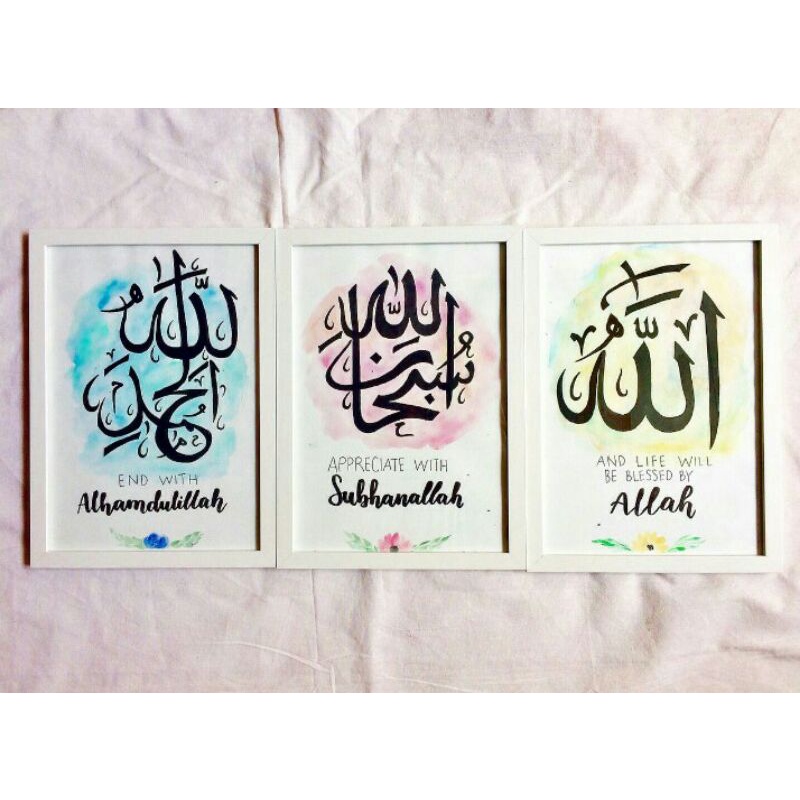 الحمد لله
END WITH
Alhamdulillah
سبحان الله
APPRECIATE WITH
Subhanallah
الله
AND LIFE WILL
BE BLESSED BY
Allah